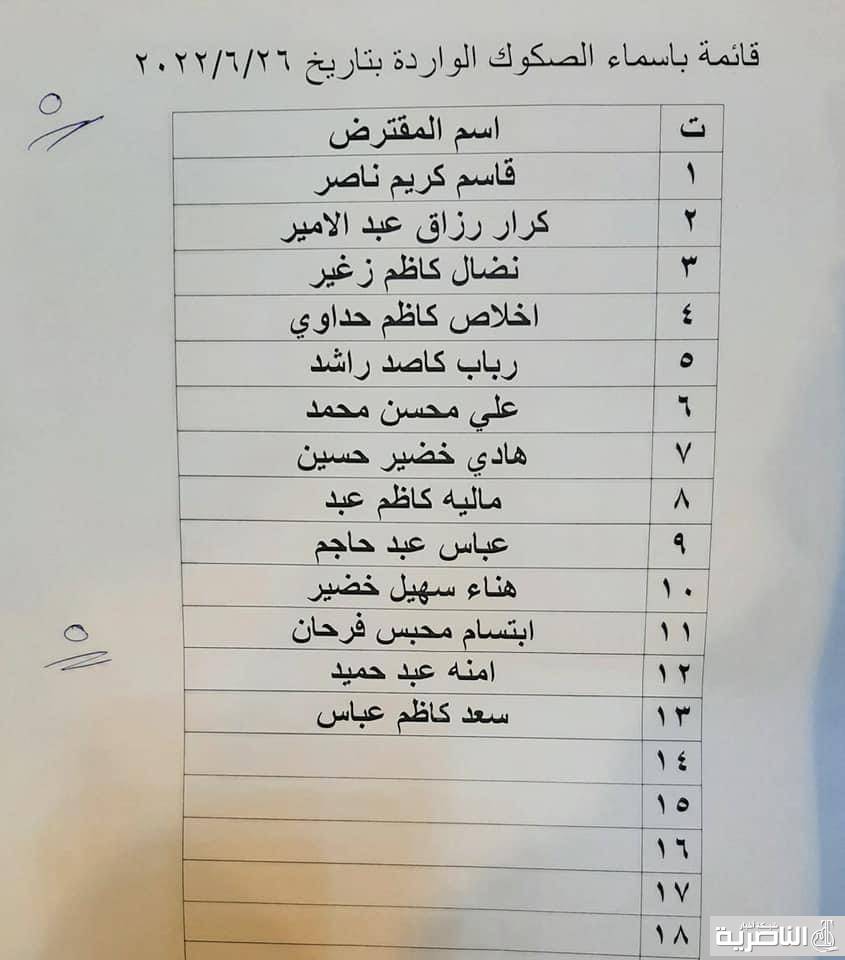 قائمة باسماء الصكوك الواردة بتاريخ ٢٠٢٢/٦/٢٦
ت اسم المقترض
١ قاسم كريم ناصر
٢ كرار رزاق عبد الامير
٣ نضال كاظم زغير
٤ اخلاص كاظم حداوي
٥ رباب كاصد راشد
٦ علي محسن محمد
٧ هادي خضير حسين
٨ ماليه كاظم عبد
٩ عباس عبد حاجم
١٠ هناء سهيل خضير
١١ ابتسام محبس فرحان
١٢ امنه عبد حميد
١٣ سعد كاظم عباس
١٤
١٥
١٦
١٧
١٨
الناصرية